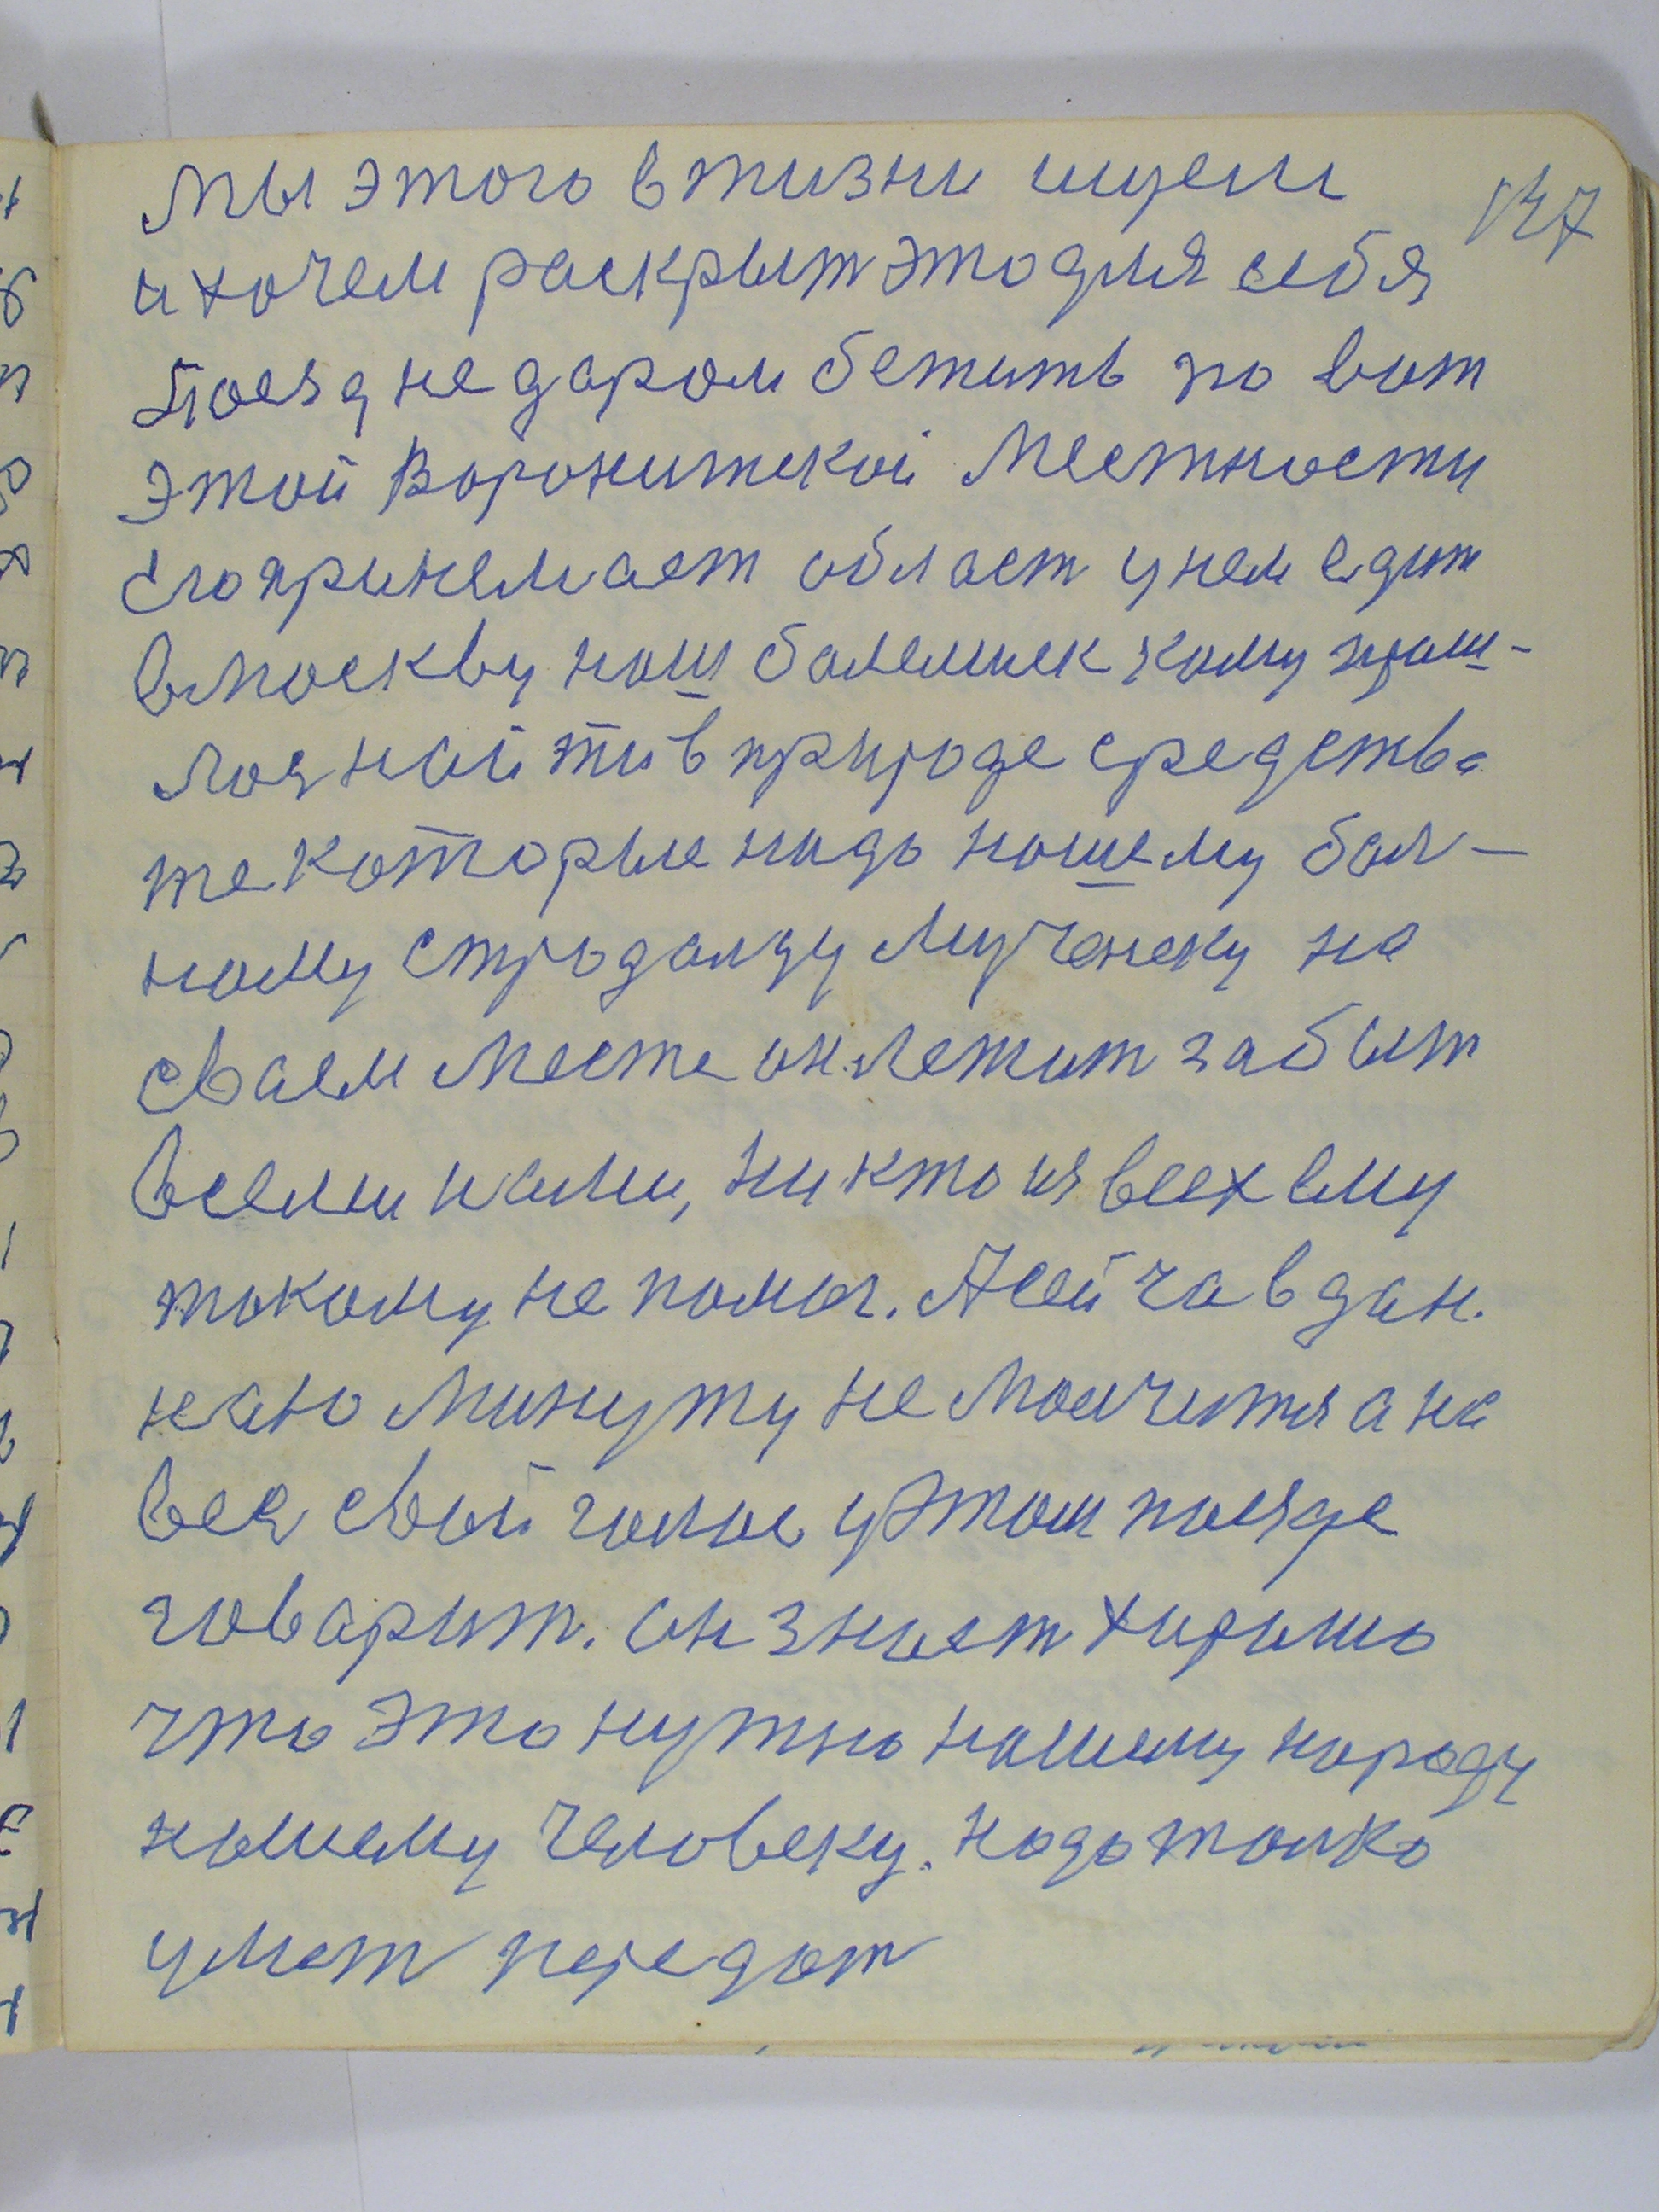 мы этого в жизни ищем
137
и хочем раскрыт это для себя
Поезд не даром бежить по вот
этой Воронижской местности
его принемает област у нем едит
в москву наш болемшек кому приш-
лося найти в природе средства
те которые надо нашему бол-
ному страдалцу мученеку на
своем месте он лежит забыт
всеми нами, никто из всех ему
такому не помог. А сейча в дан.
ною минуту не молчится а на
вся свой голос у этом поезде
говарит. он знает хорошо
что это нужно нашему народу
нашему человеку. надо толко
умет передат